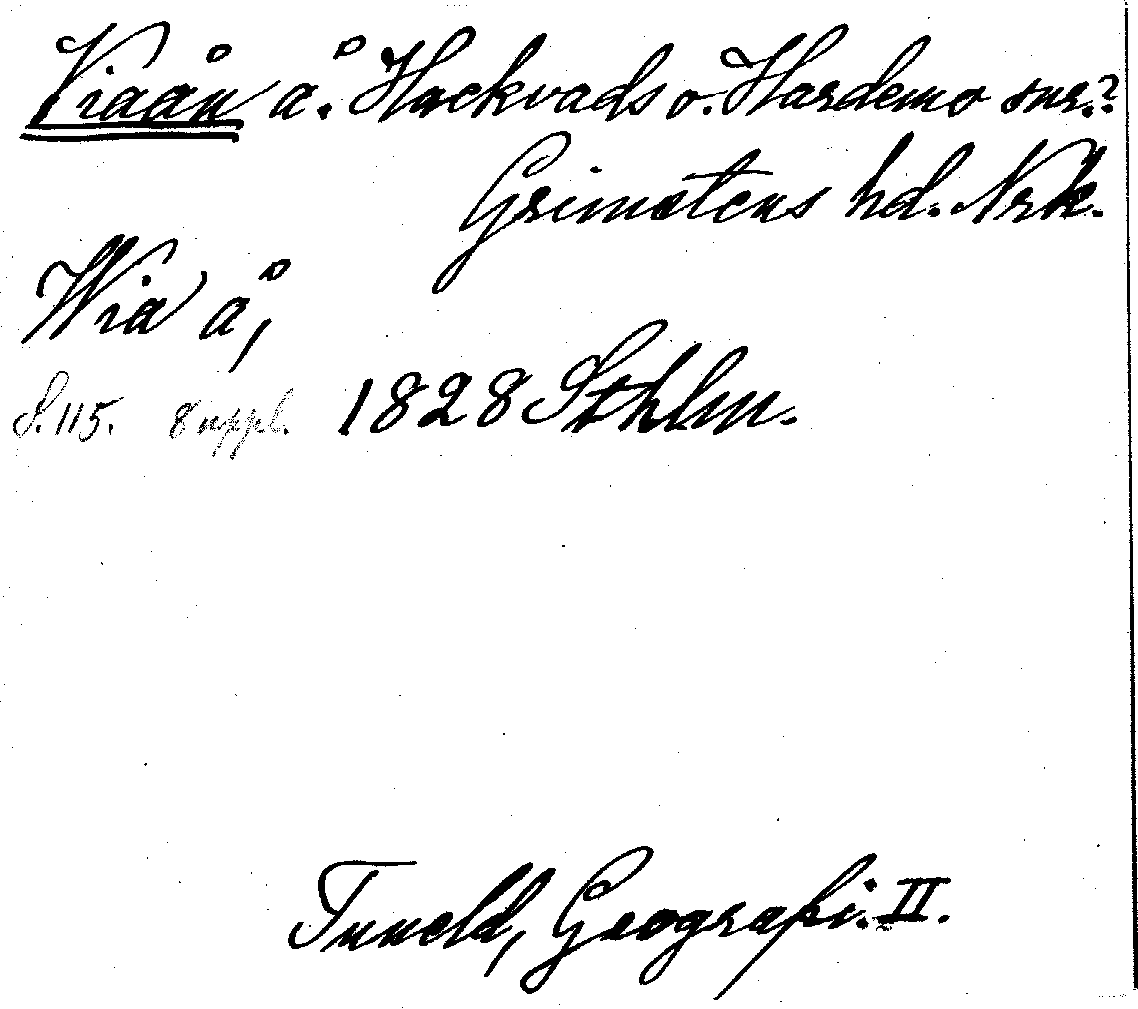 Viaån å. Hackvads o. Hardemo snr.?
Grimstens hd. Nrk.
Wia å,
S. 115. Suppl. 1828 Sthlm.
Tuneld, Geografi. II.